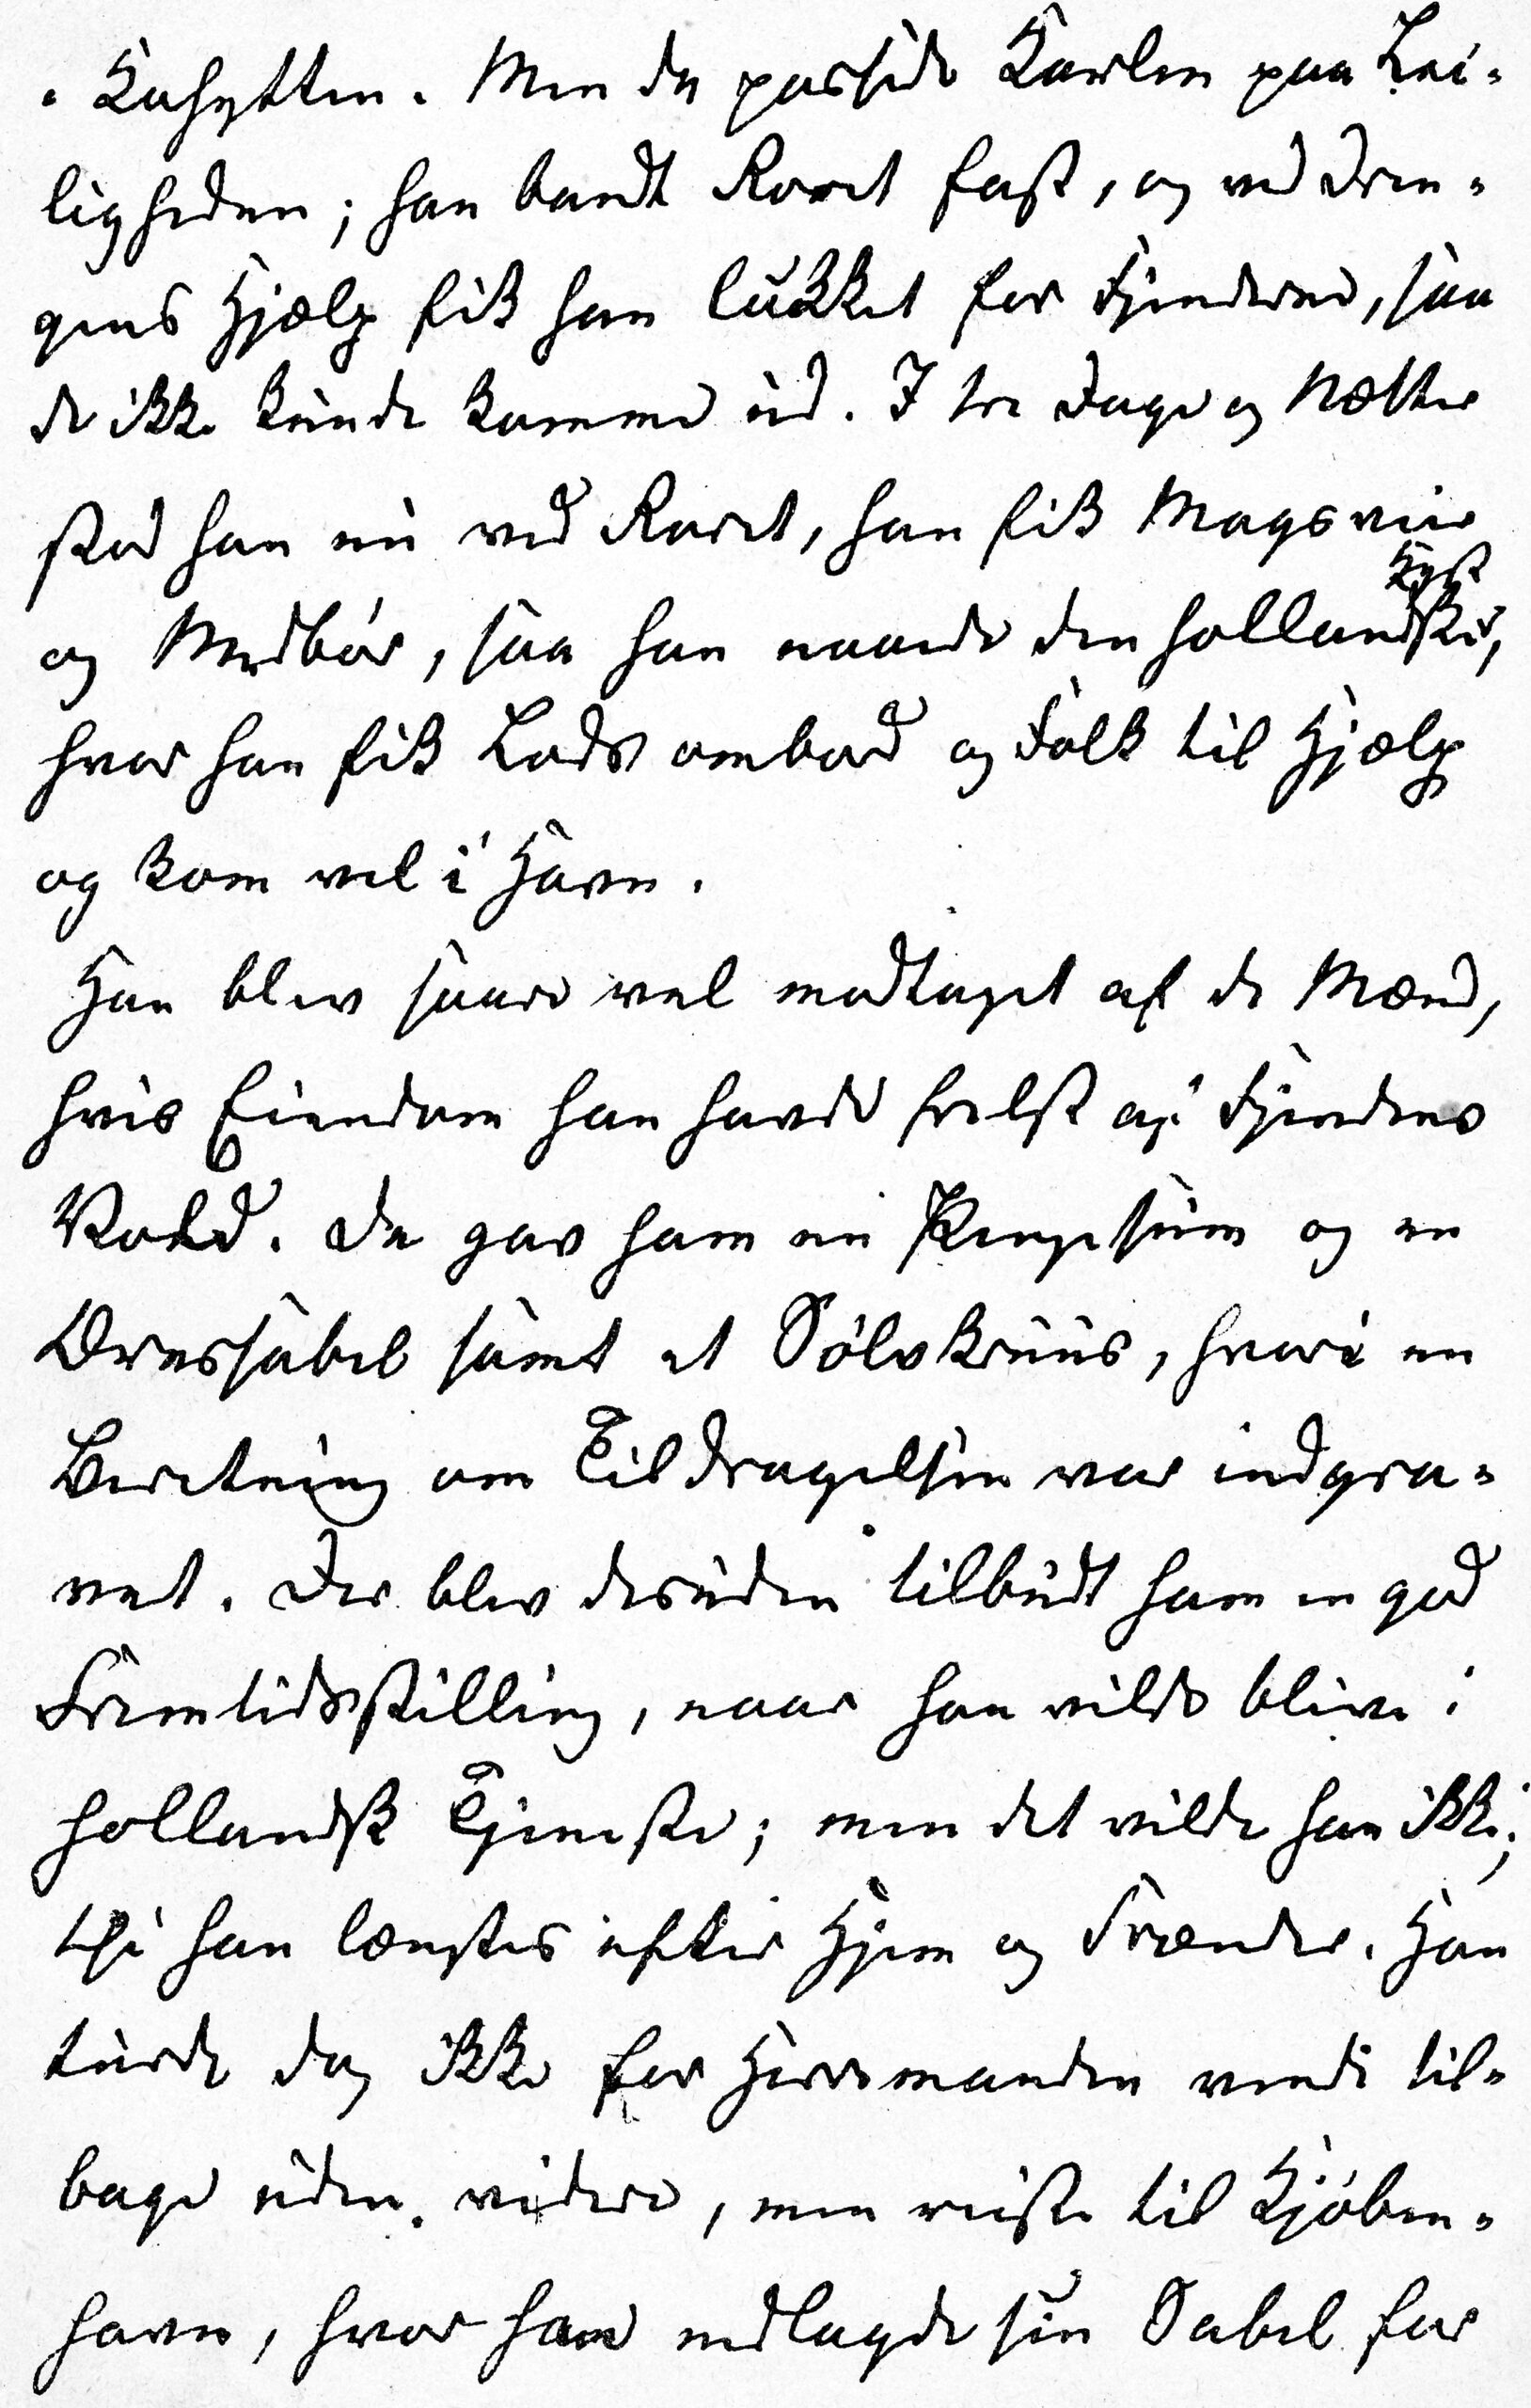 i Kahytten. Men da passede Karlen paa Lei-
ligheden; han bandt Roret fast, og ved Dren-
gens Hjælp fik han lukket for Fjenderne, saa
de ikke kunde komme ud. I tre Dage og Nætter
stod han nu ved Roret, han fik Magsveir
og Medbør, saa han naaede den hollandske Kyst,
hvor han fik Lods ombord og Folk til Hjælp
og kom vel i Havn.
Han blev saare vel modtaget af de Mænd,
hvis Eiendom han havde frelst af Fjendens
Vold. De gav ham en Pengesum og en
Æressabel samt et Sølvkruus, hvori en
Beretning om Tildragelsen var indgra-
vet. Der blev desuden tilbudt ham en god
Fremtidsstilling, naar han vilde blive i
hollandsk Tjeneste; men det vilde han ikke;
thi han længtes efter Hjem og Frænder. Han
turde dog ikke for Herremanden vende til-
bage uden videre, men reiste til Kjøben-
havn, hvor han nedlagde sin Sabel for